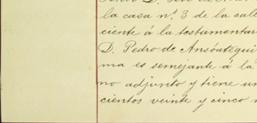 la casa nº 3 de la calle
ciente á la testamentar
D. Pedro de Ansóategui
ma es semejante á la
no adjunto y tiene un
cientos veinte y cinco